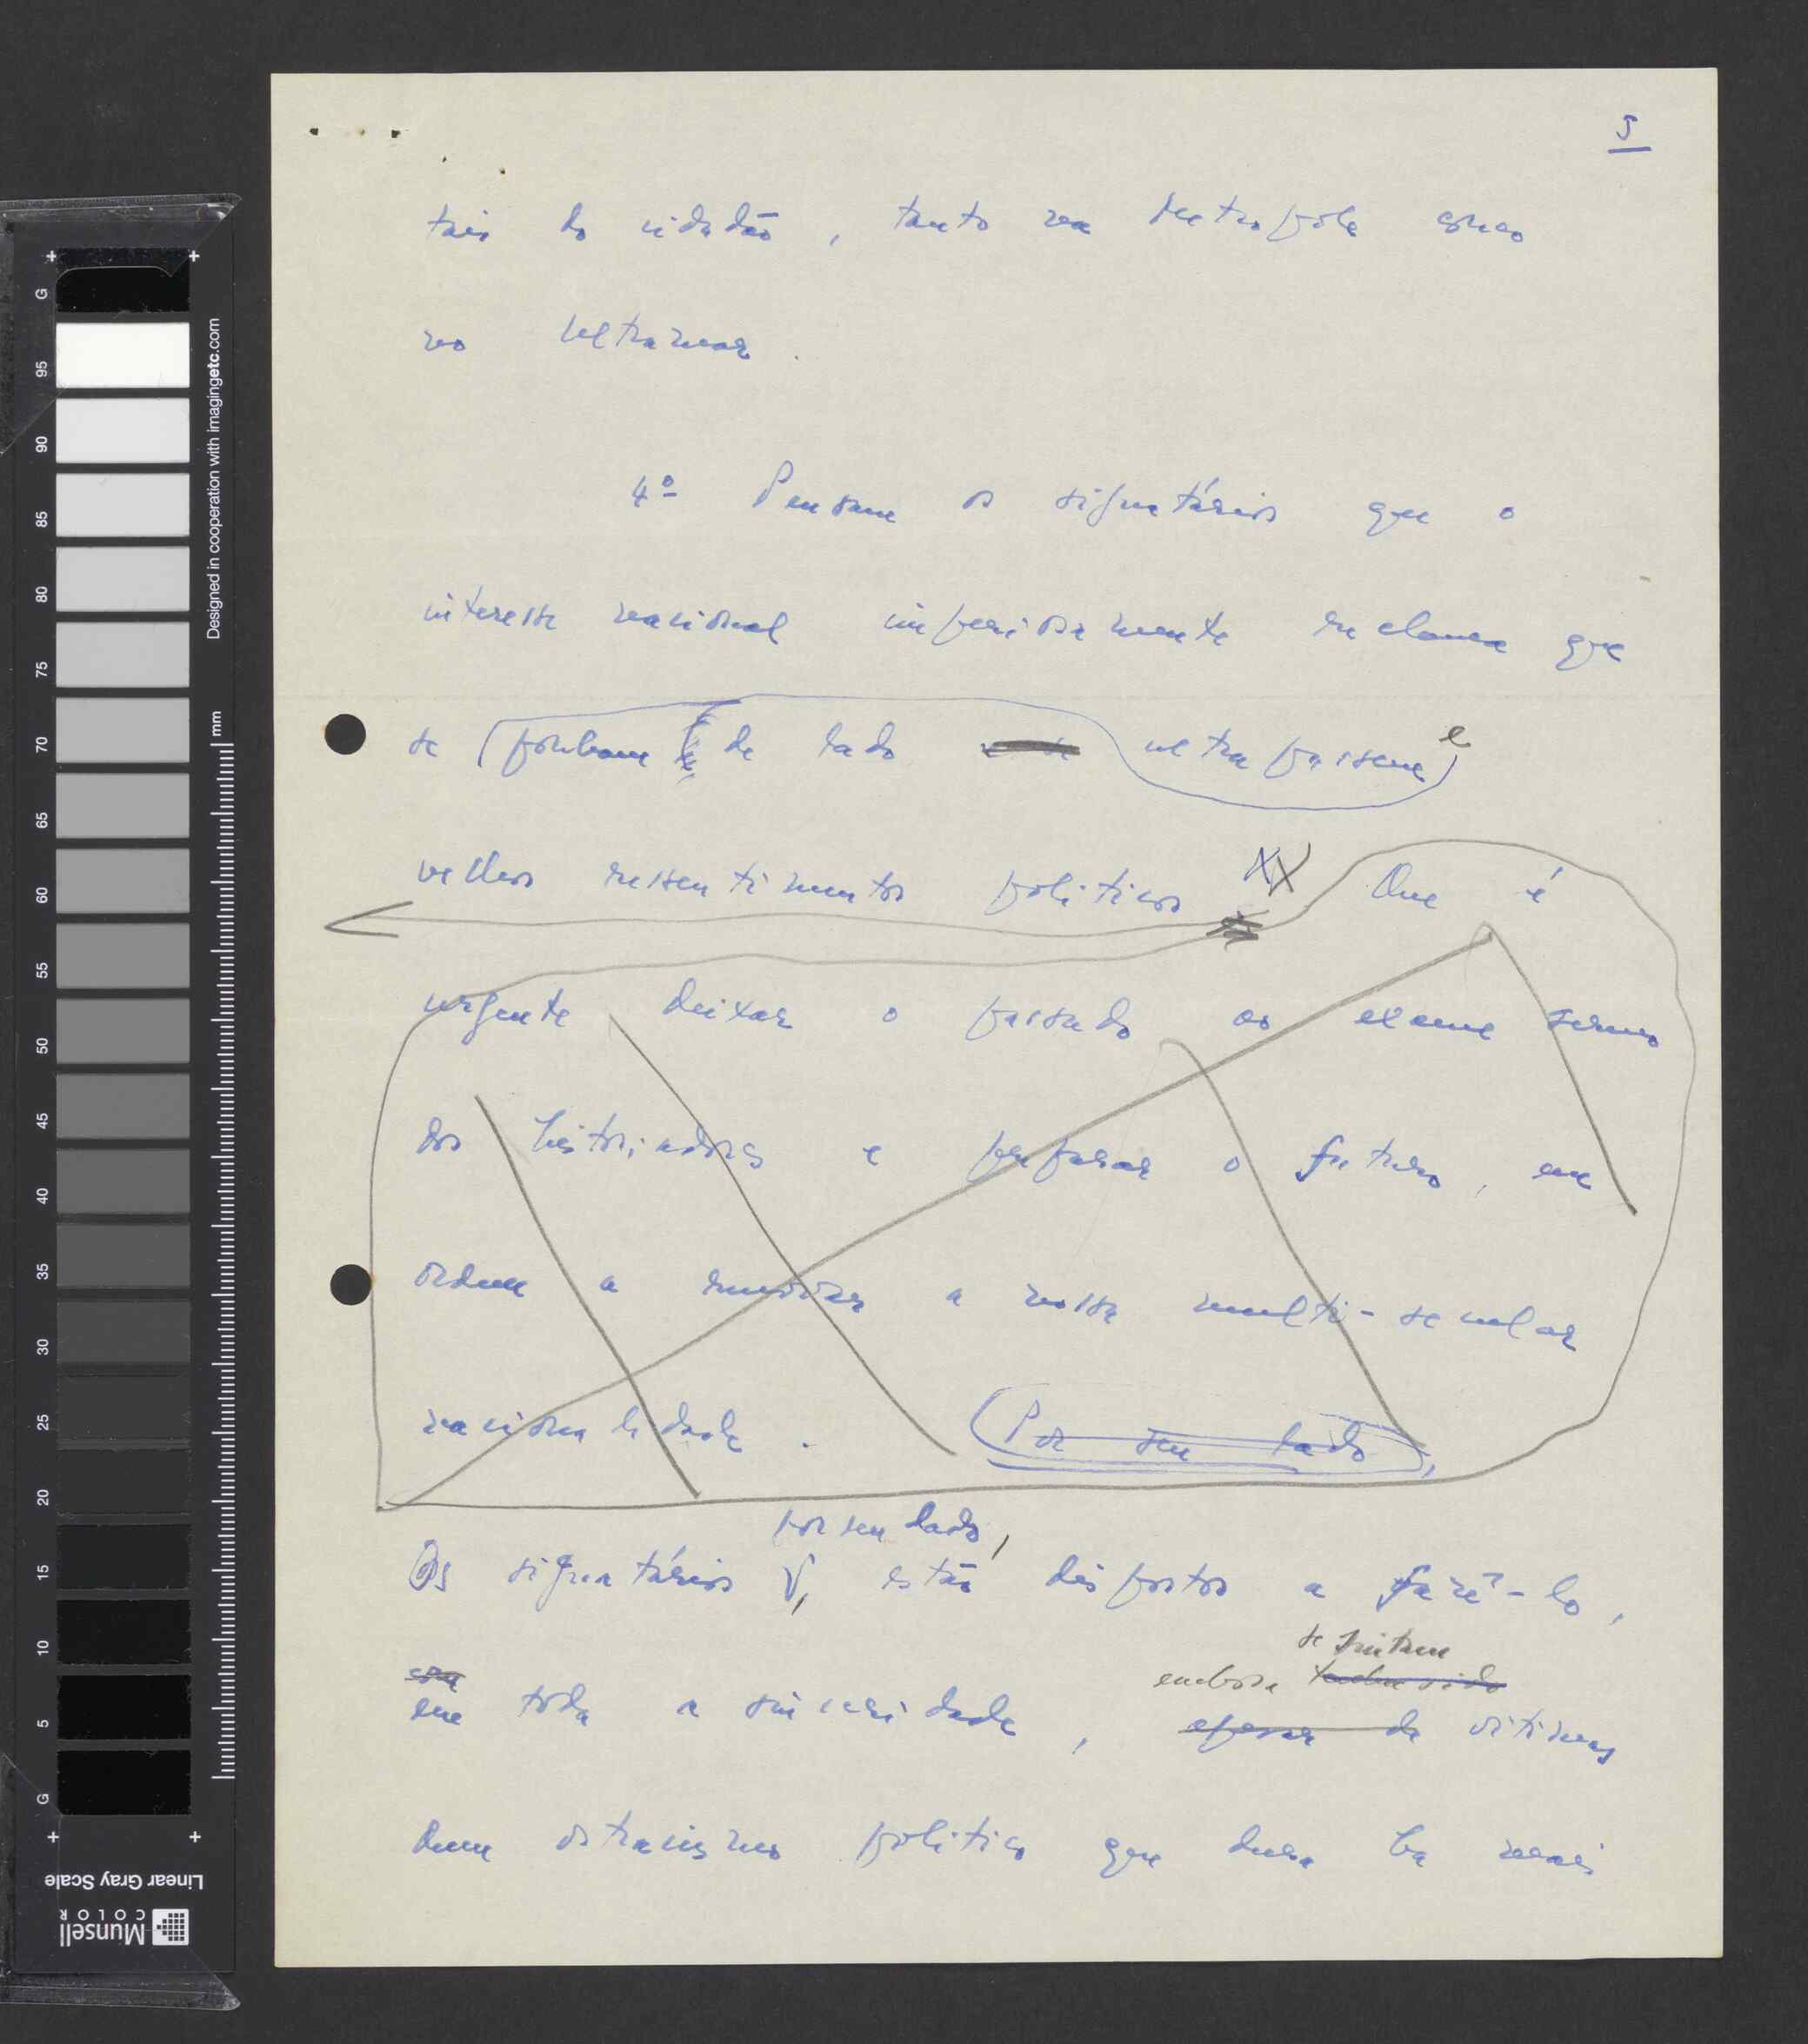 5
tais do cidadão, tanto na Metropole como
no Ultramar.
4º Pensam os signatários que o
interesse nacional imperiosamente reclama que
se ponham de lado ultrapassem e
velhos ressentimentos politicos XX Que é
urgente deixar o passado ao exame sereno
dos historiadores e preparar o futuro, em
ordem a a nossa multi-secular
nacionalidade. (Por seu lado,
por seu lado,
Os signatários V, estão dispostos a fazê-lo,
com
em toda a sinceridade, apesar de vitimas
se sintam
embora tenham sido
dum ostracismo politico que dura ha mais
G
95
90
85
80
75
70
65
60
55
50
45
40
35
30
25
20
15
10
5
G
Designed in cooperation with imagingetc.com
mm
Linear Gray Scale
Munsell
COLOR